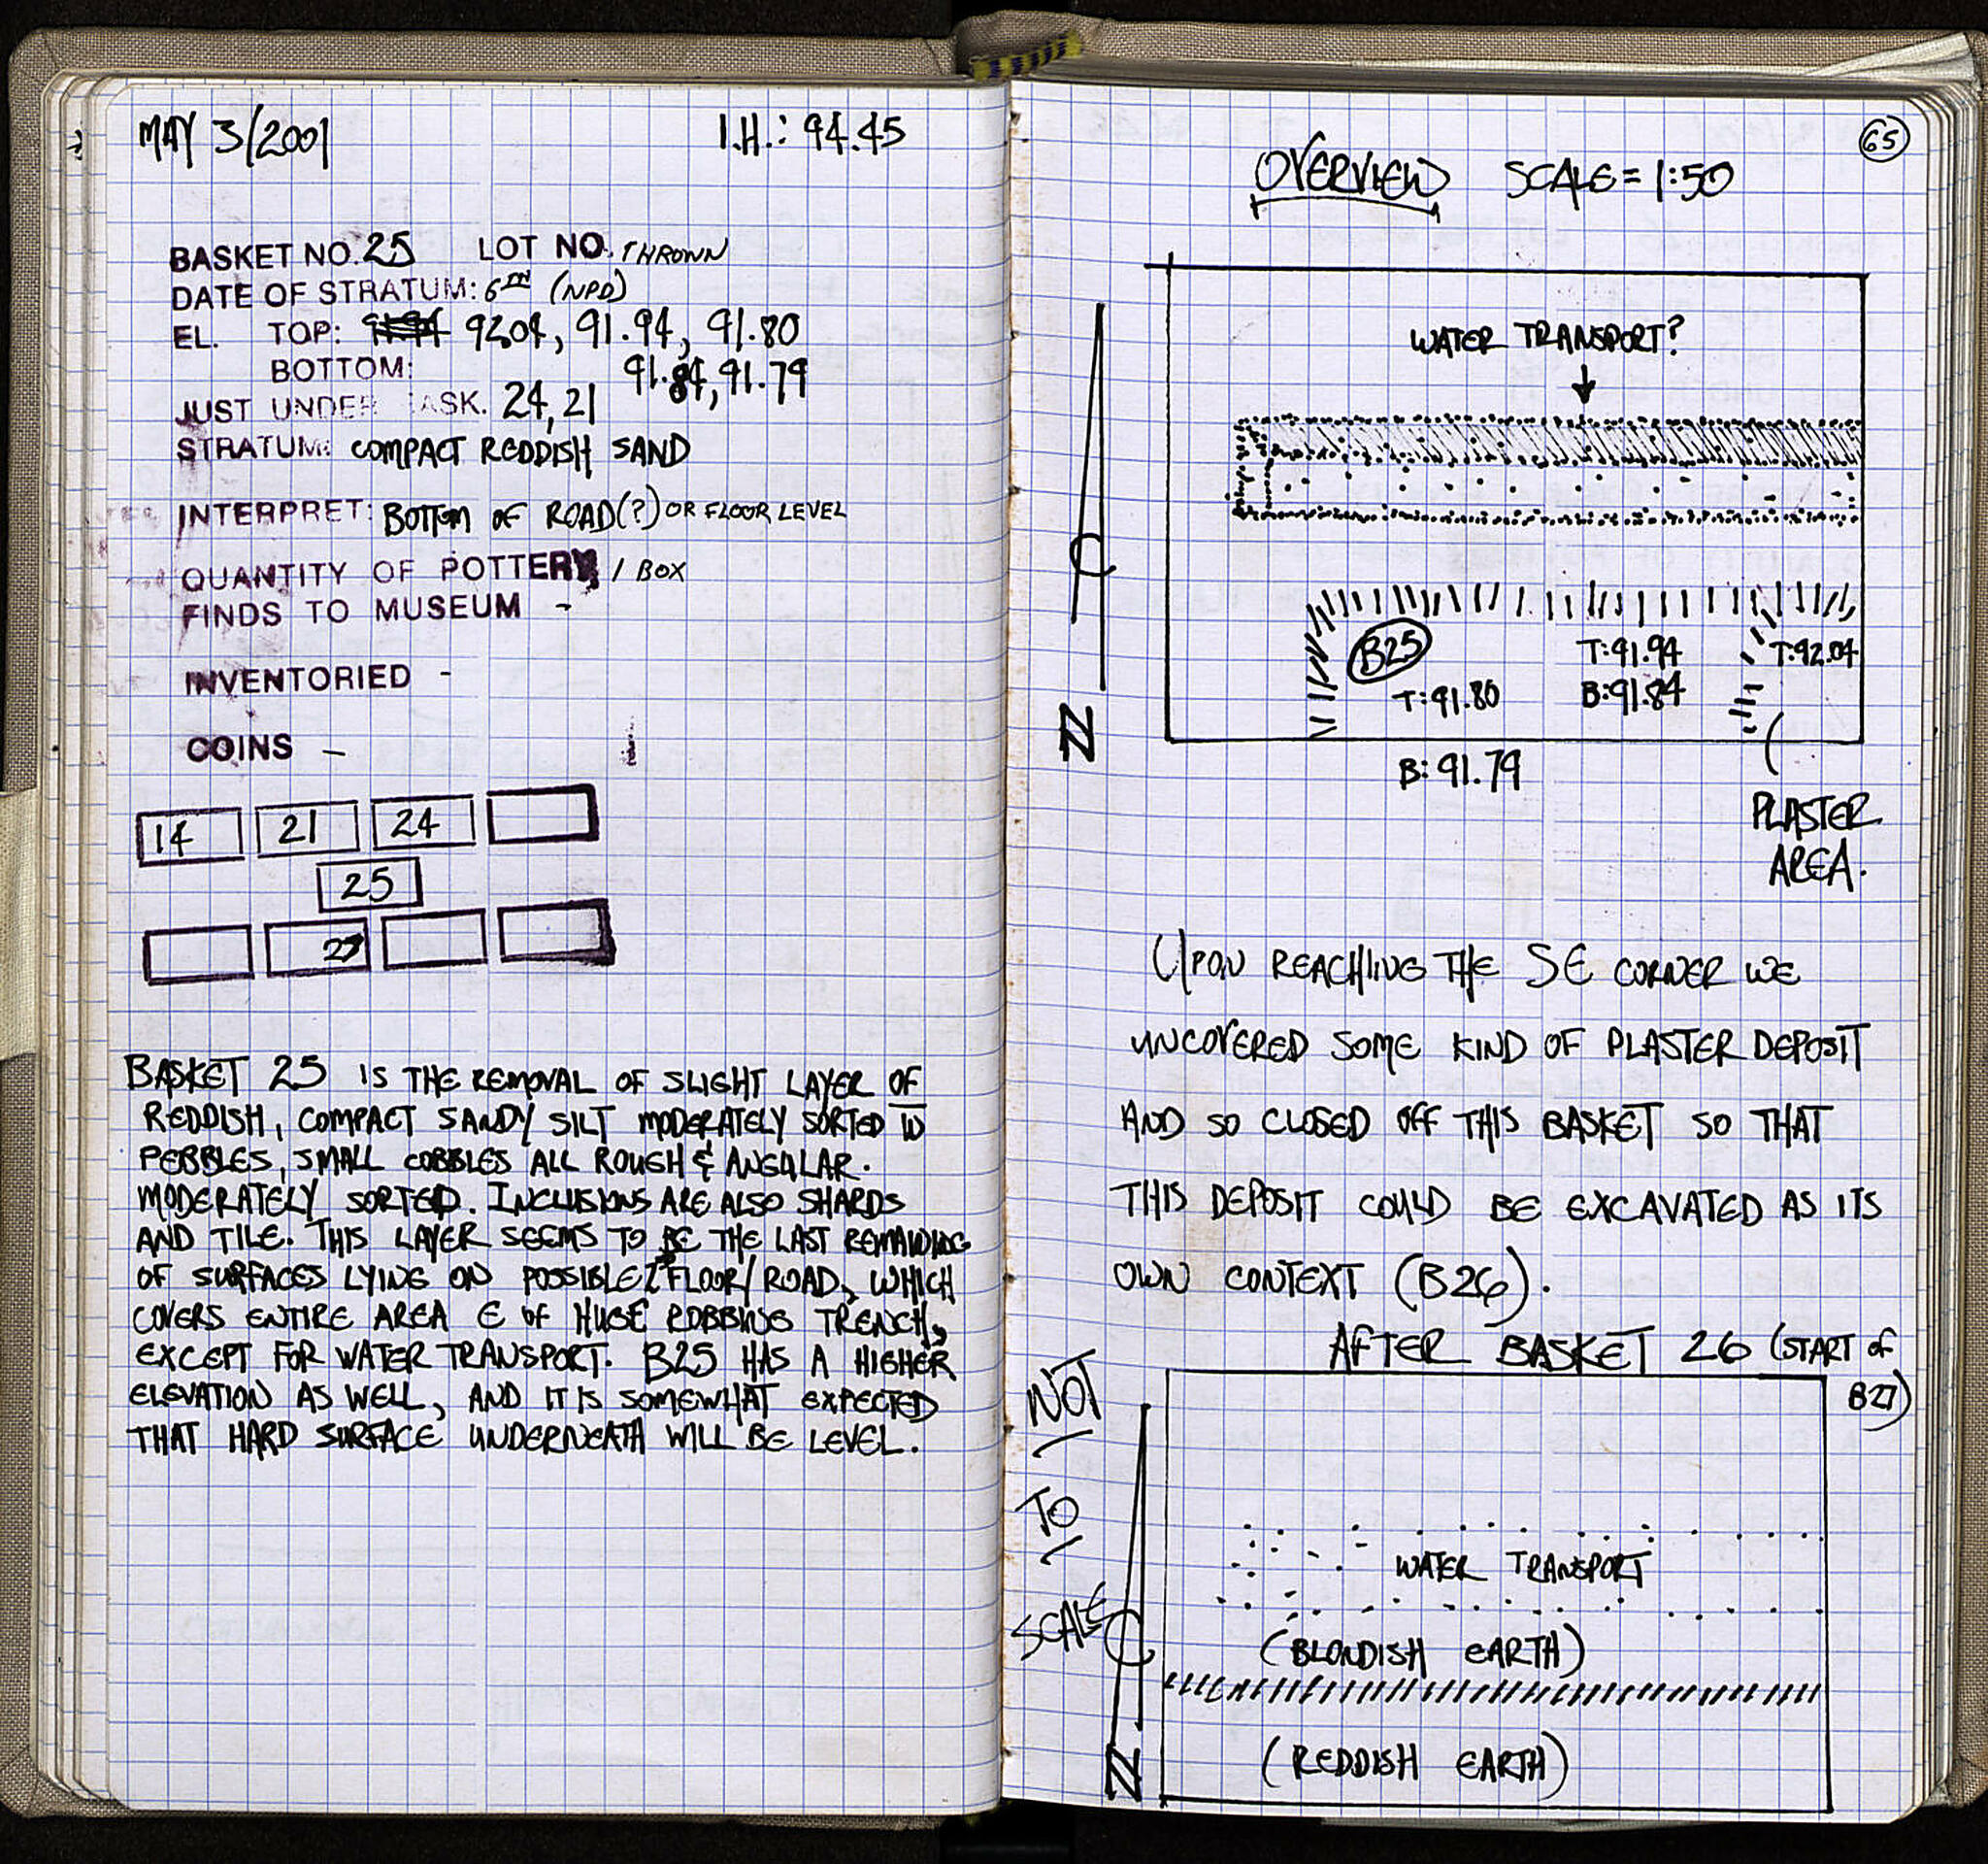 MAY 3/2001 I.H.: 94.45
BASKET NO. 25 LOT NO. THROWN
DATE OF STRATUM: 6TH (NPD)
EL. TOP: 9204, 91.94, 91.80
BOTTOM: 91.84, 91.79
JUST UNDER BASK. 24, 21
STRATUM: COMPACT REDDISH SAND
INTERPRET: BOTTOM OF ROAD(?) OR FLOOR LEVEL
QUANTITY OF POTTERY 1 BOX
FINDS TO MUSEUM -
INVENTORIED -
COINS -
14 21 24
25
27
BASKET 25 IS THE REMOVAL OF SLIGHT LAYER OF
REDDISH, COMPACT SANDY SILT MODERATELY SORTED W
PEBBLES, SMALL COBBLES ALL ROUGH & ANGULAR.
MODERATELY SORTED. INCLUSIONS ARE ALSO SHARDS
AND TILE. THIS LAYER SEEMS TO BE THE LAST REMAINING
OF SURFACES LYING ON POSSIBLE FLOOR/ROAD, WHICH
COVERS ENTIRE AREA E OF HUGE ROBBING TRENCH,
EXCEPT FOR WATER TRANSPORT. B25 HAS A HIGHER
ELEVATION AS WELL, AND IT IS SOMEWHAT EXPECTED
THAT HARD SURFACE UNDERNEATH WILL BE LEVEL.
65
OVERVIEW SCALE = 1:50
WATER TRANSPORT?
B25
T:91.94 T:92.04
T:91.80 B:91.84
N
B: 91.79
PLASTER
AREA.
UPON REACHING THE SE CORNER WE
UNCOVERED SOME KIND OF PLASTER DEPOSIT
AND SO CLOSED OFF THIS BASKET SO THAT
THIS DEPOSIT COULD BE EXCAVATED AS ITS
OWN CONTEXT (B26).
AFTER BASKET 26 (START OF
B27)
NOT
TO
SCALE
WATER TRANSPORT
(BLONDISH EARTH)
(REDDISH EARTH)
N